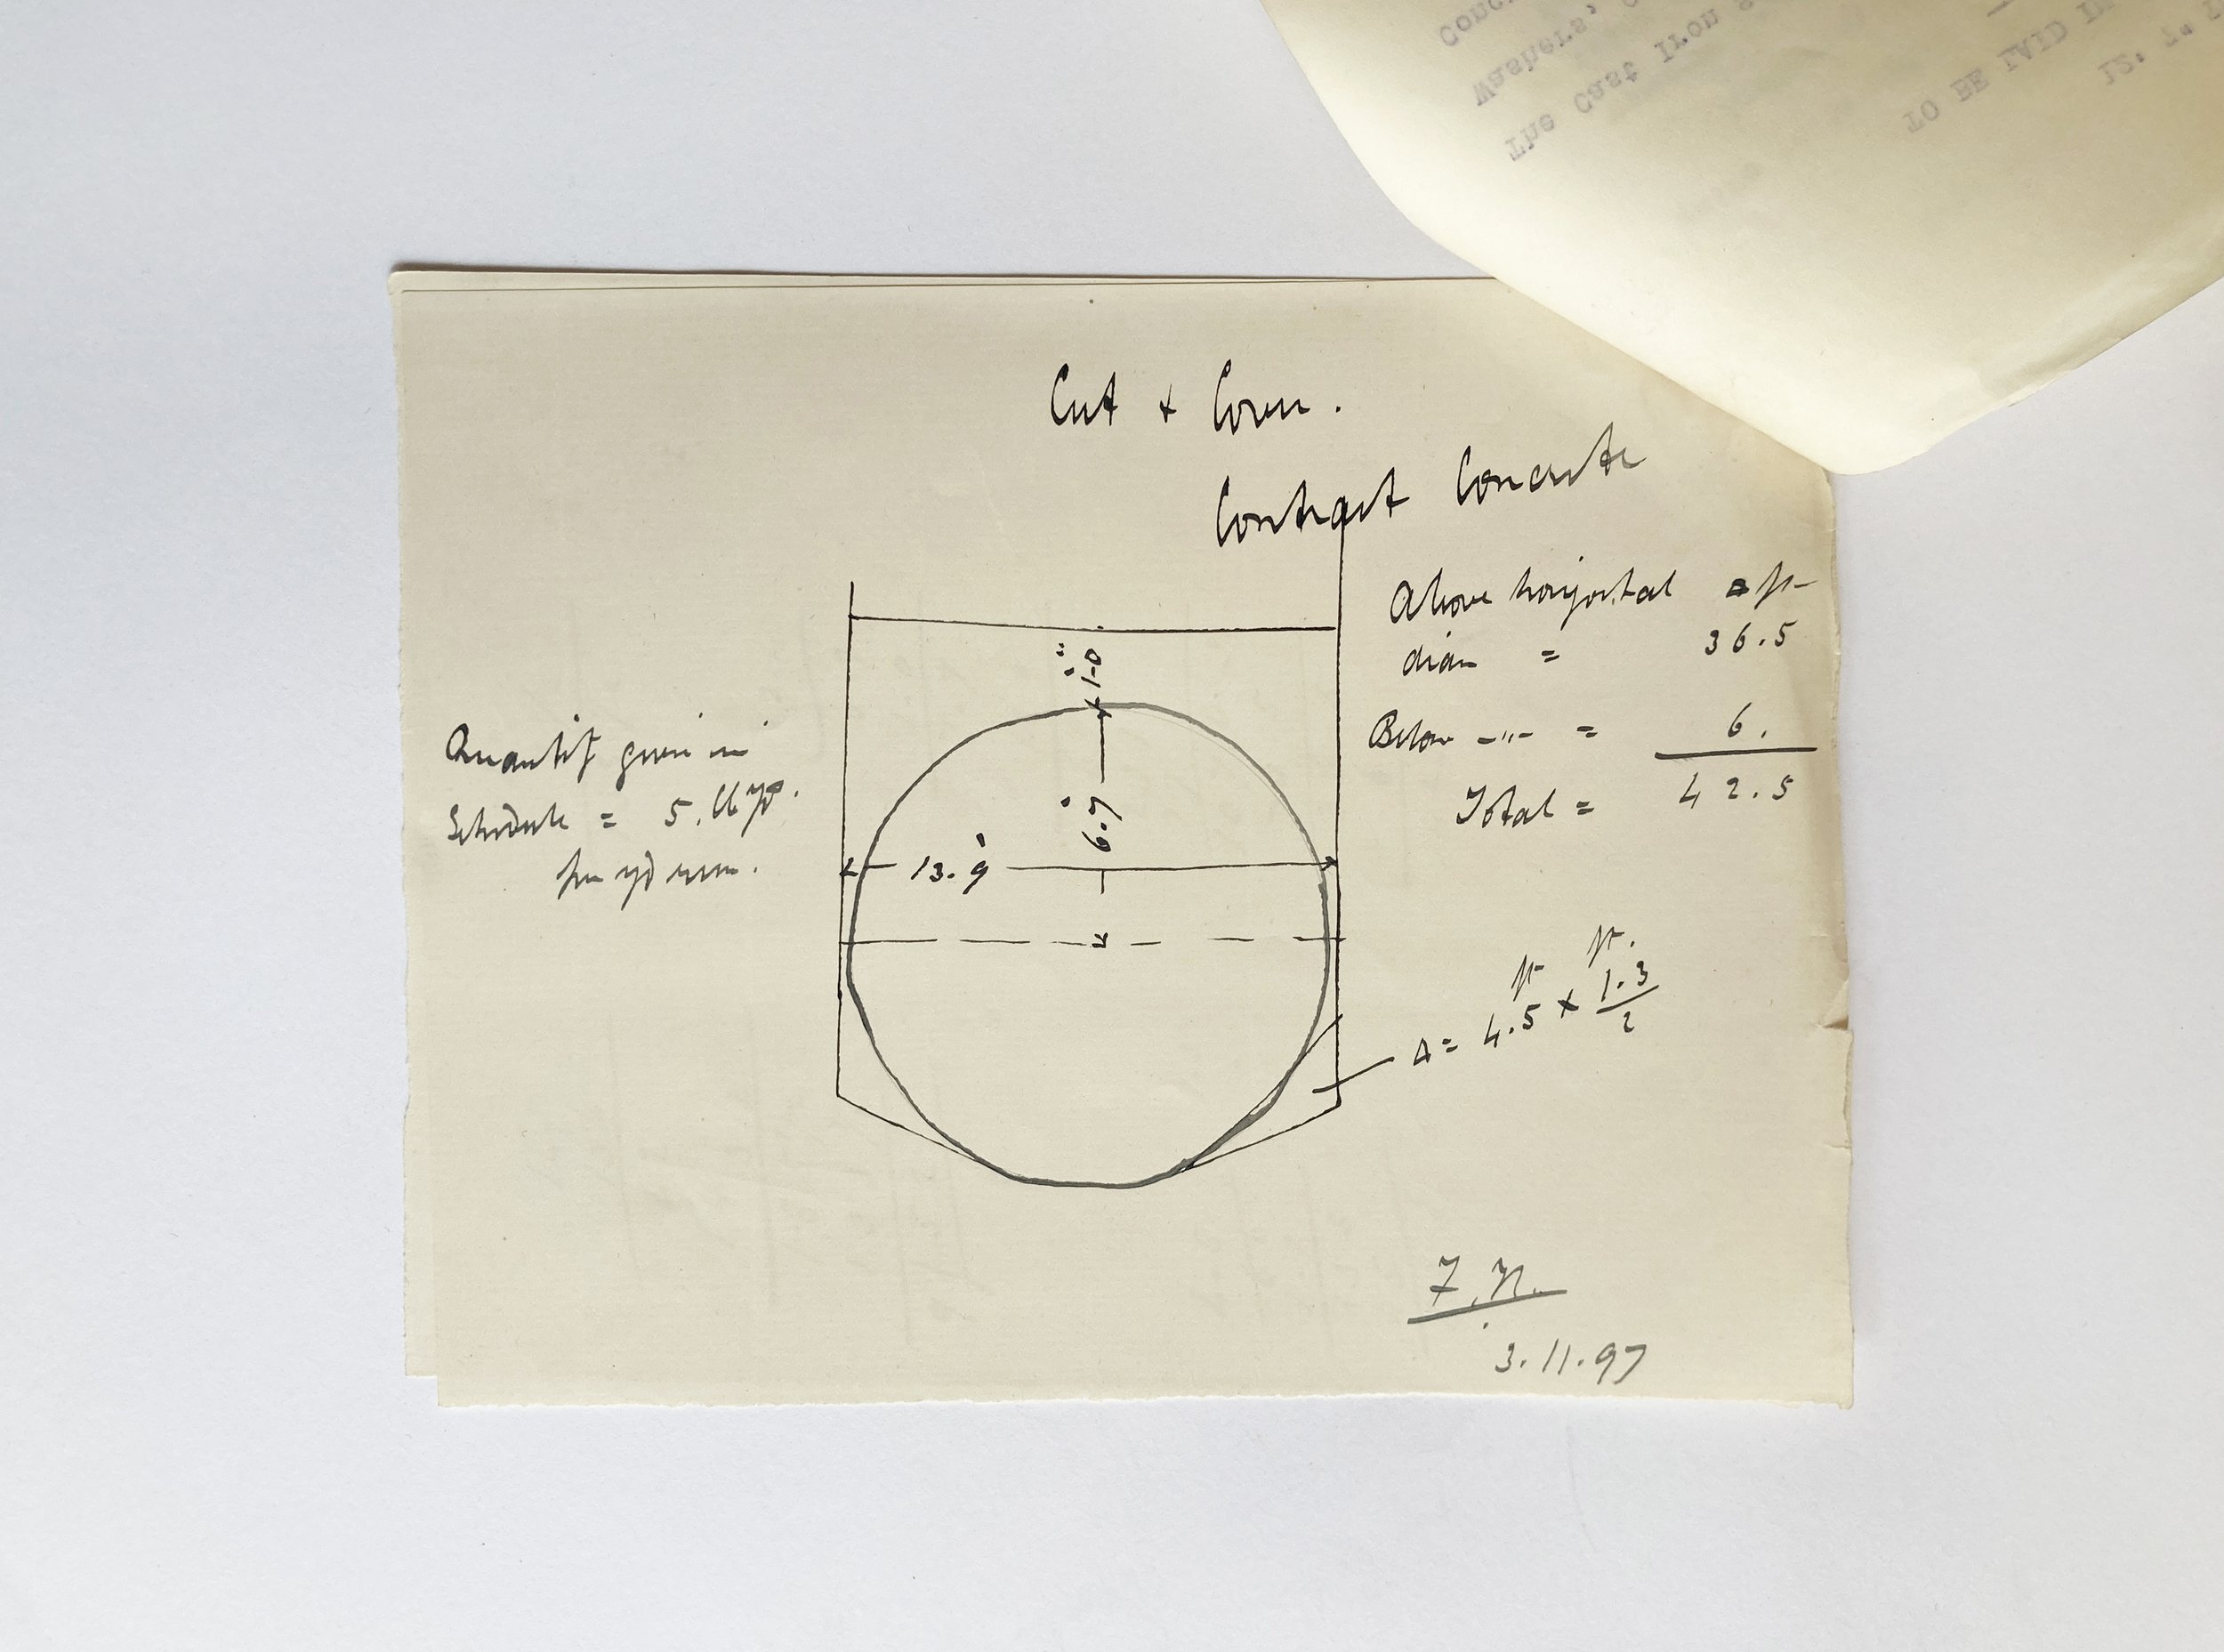 Conc
Washers,
The Cast Iron S
TO BE LAID IN
12' 7"
Cut + Cover.
Contract Concrete
Above horizontal ft
diam = 36.5
Below -"- = 6.
Total = 42.5
Quantity given in
Schedule = 5.66 yds.
per yd run.
1-0"
6.9
13.9
ft ft.
Δ = 4.5 × 1.3
2
7.N.
3.11.97